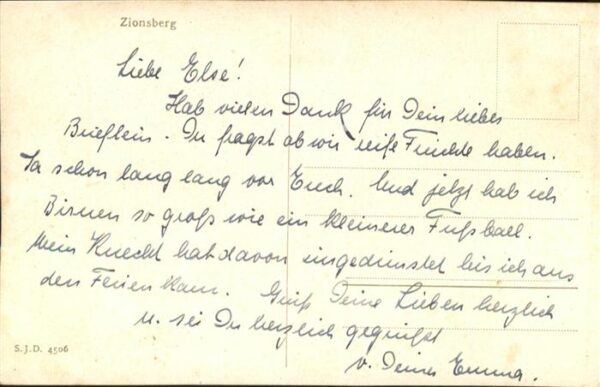 Zionsberg
Liebe Else!
Hab vielen Dank für Dein liebes
Brieflein. Du fragst ob wir reife Früchte haben.
Ja schon lang lang vor Euch. Und jetzt hab ich
Birnen so groß wie ein kleinerer Fußball.
Mein Knecht hat davon eingedünstet bis ich aus
den Ferien kam. Grüß Deine Lieben herzlich
u. sei Du herzlich gegrüßt
v. Deiner Emma.
S.J.D. 4506